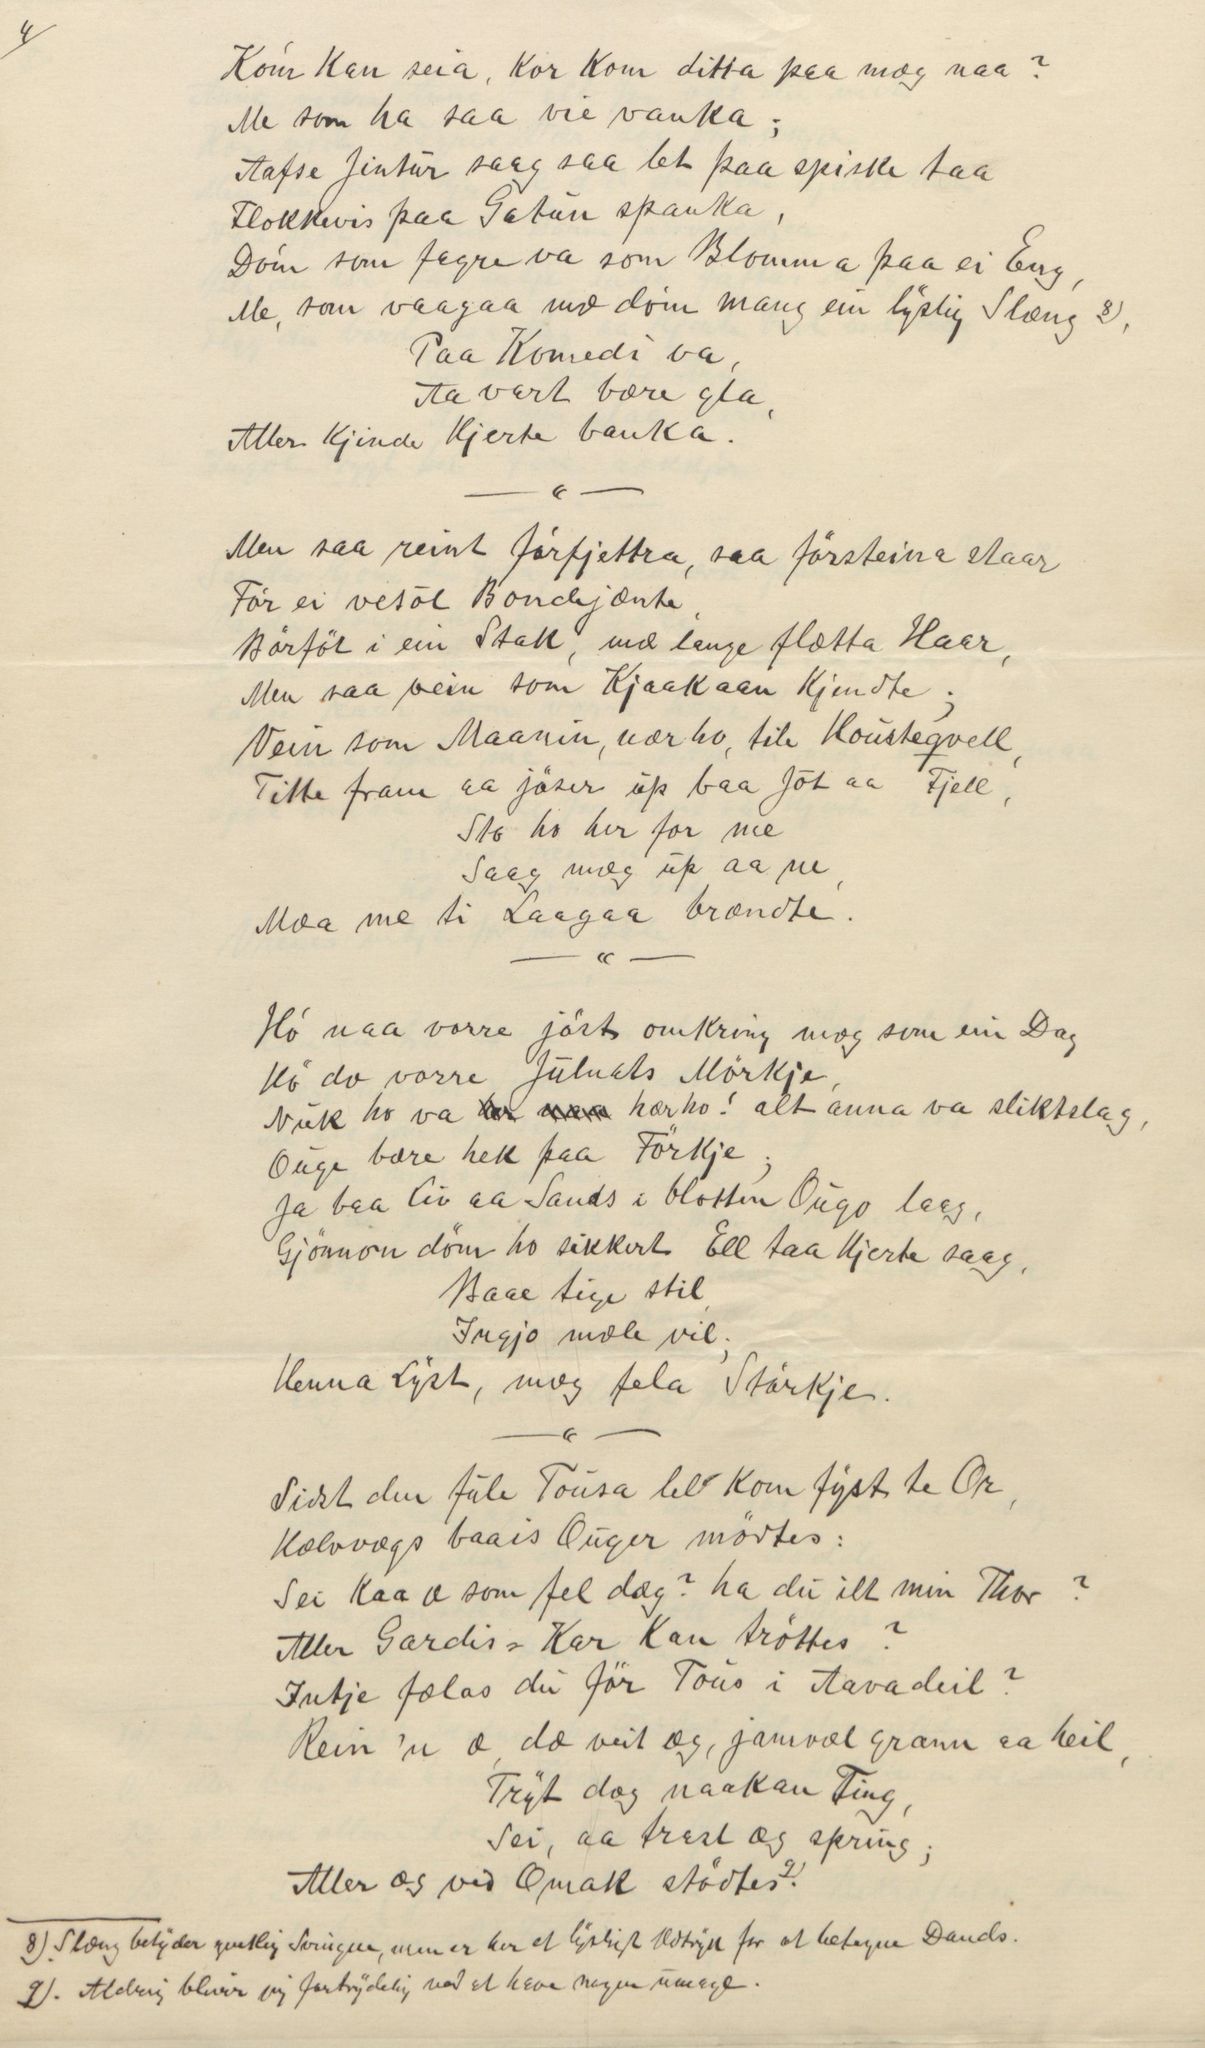 4
Kóm Kan seia, Kor Kom ditta paa mæg naa?
Me som ha saa vie vanka;
Aafse Jintür saag saa let paa spiske taa
Flokkevis paa Gatün spanka,
Dóm som fagre va som Blomma paa ei Eng,
Me, som vaagaa mæ dóm mang ein lÿstig Slæng 8),
Paa Komedi va,
Aa vart bære gla,
Aller Kjinde Hjerte banka.
— " —
Men saa reint fórfjettra, saa fórsteina staar
Fór ei vesöl Bondejænte,
Bárföt i ein Stak, mæ lange flætta Haar,
Men saa vein som Kjaakaan Kjendte;
Vein som Maanin, nær ho, tile Housteqvell,
Titte fram aa jöser üp baa Jöt aa Fjell,
Sto ho her for me
Saag mæg üp aa ne,
Mæa me ti Laagaa brændte.
— " —
Hó naa vorre jóst omkring mæg som ein Dag
Hó do vorre Jülnats Mörkje,
Nük ho va hærho! alt anna va sliktslag,
Oüge bære hek paa Förkje;
Ja baa Liv aa Sands i blotten Oügo laag,
Gjönnom döm ho sikkert Ell taa Hjerte saag,
Baae tige stil,
Ingjo mæle vil;
Henna Lÿst, mæg fela Stórkje.
— " —
Sidst den füle Toüsa lel Kom fÿst te Or,
Halvvægs baais Oüger mödtes:
Sei Kaa æ som fel dæg? ha dü ilt min Thor?
Aller Gardis-Kar Kan tröttes?
Intje fælas düför Toüs i Aavadeil?
Rein 'n æ, dæ veit æg, jamvæl grann aa heil,
Trÿt dæg naakan Ting,
Sei, aa trast æg spring;
Aller æg ved Omak stödtes 9).
8) Slæng betÿder egentlig Svingen, men er her et lÿstigt Udtrÿk for at betegne Dands.
9). Aldrig bliver jeg fortrÿdelig ved at have nogen ümage.